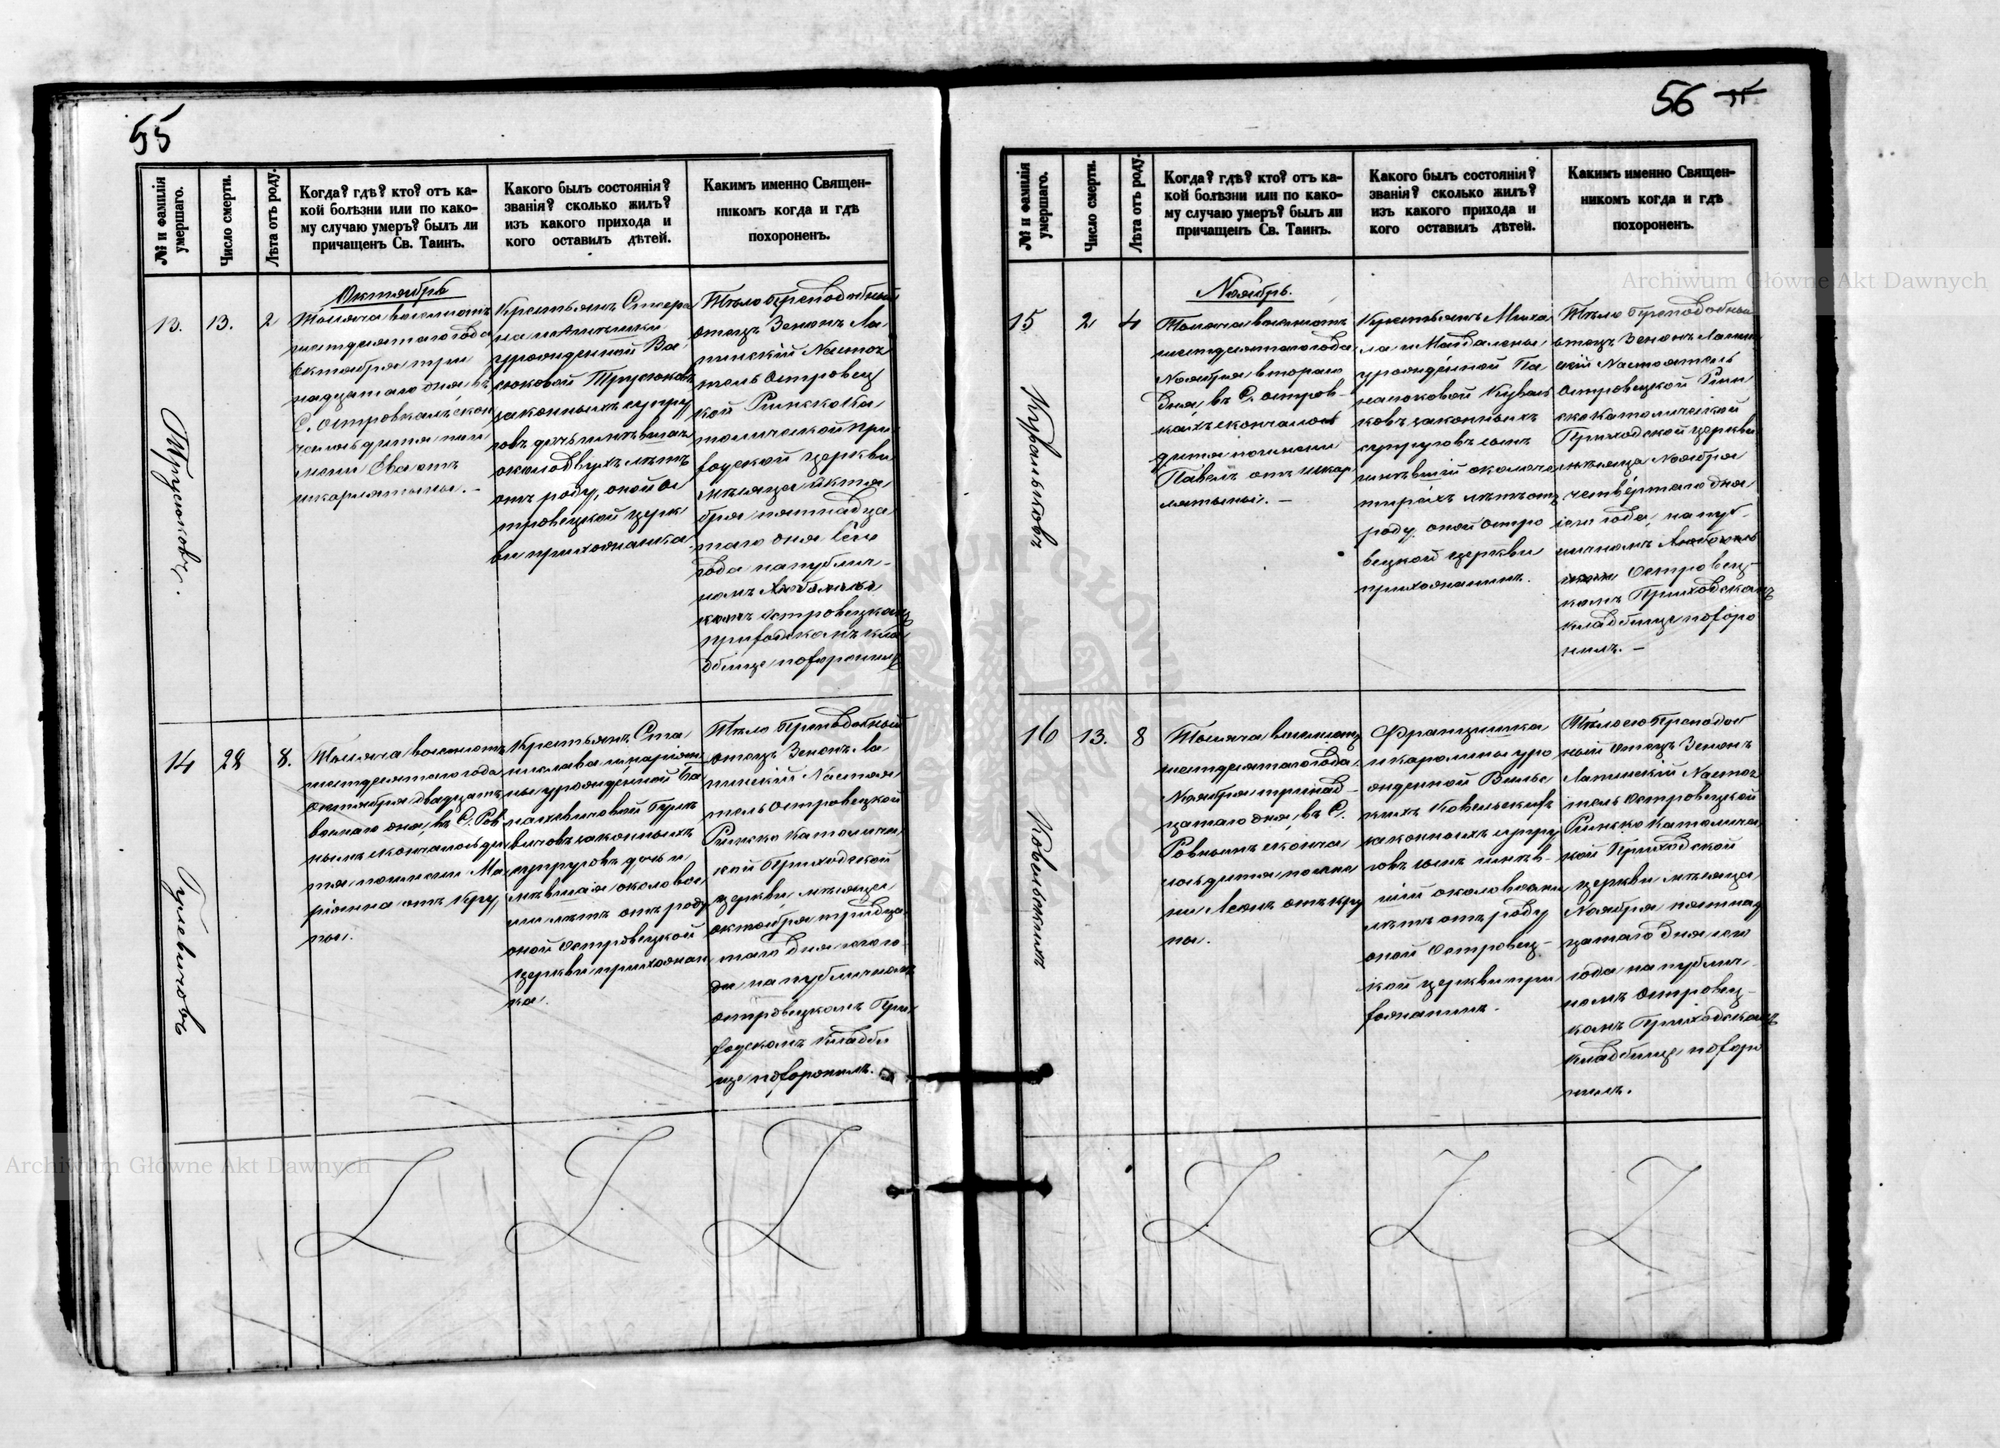 55
№ и фамилія умершаго.
Число смерти.
Лѣта отъ роду.
Когда? гдѣ? кто? отъ ка-
кой болѣзни или по како-
му случаю умеръ? былъ ли
причащенъ Св. Таинъ.
Какого былъ состоянія?
званія? сколько жилъ?
изъ какого прихода и
кого оставилъ дѣтей.
Какимъ именно Священ-
никомъ когда и гдѣ
похороненъ.
13.
Трусюковъ.
13.
2
Октябрь
Тысяча восемьсотъ
шестдесятаго года
Октября три
надцатаго дня въ
С. Островкахъ скон
чалось дитя по и
мени Ева отъ
шкарлятыны. –
Крестьянъ
урожденной Ва
сюковой Трусюковъ
законныхъ супру
говъ дочь имѣвшая
около двухъ лѣтъ
отъ роду, оной Ос
тровецкой церк
ви прихожанка.
Тѣло Преподобный
отецъ Зенонъ Ла
пинскій Настоя
тель Островец
кой Римско Ка
толической При
ходской церкви
мѣсяца Октя
бря пятнадца
таго дня сего
года на публич-
номъ
комъ Островецкомъ
приходскомъ кла
дбище похоронилъ
14
Гулевичовъ
28
8.
Тысяча восемьсотъ
шестдесятаго года
Октября двадцать
восмаго дня, въ С. Ров
номъ скончалось ди
тя по имени Ма
ріянна отъ кру
пы.
Крестьянъ Ста
нислава и Маріян
ны урожденной
Гуле
вичовъ законныхъ
супруговъ дочь и
мѣвшая около вос
ми лѣтъ отъ роду
оной Островецкой
церкви прихожан
ка.
Тѣло Преподобный
отецъ Зенонъ Ла
пинскій Настоя
тель Островецкой
Римско Католичес
кой Приходской
церкви мѣсяца
октября тридца
таго дня сего го
да на публичномъ
островецкомъ При
ходскомъ кладби
ще похоронилъ.
56 55
№ и фамилія умершаго.
Число смерти.
Лѣта отъ роду.
Когда? гдѣ? кто? отъ ка-
кой болѣзни или по како-
му случаю умеръ? былъ ли
причащенъ Св. Таинъ.
Какого былъ состоянія?
званія? сколько жилъ?
изъ какого прихода и
кого оставилъ дѣтей.
Какимъ именно Священ-
никомъ когда и гдѣ
похороненъ.
15
2
4
Ноябрь.
Тысяча восемьсотъ
шестдесятаго года
Ноября втораго
дня въ С. Остров-
кахъ скончалось
дитя по имени
Павелъ отъ шкар
лятыны. –
Крестьянъ Миха
ла и Магдалены
урожденной Па
насюковой
ковъ законныхъ
супруговъ сынъ
имѣвшій около че
тырехъ лѣтъ отъ
роду оной Остро
вецкой церкви
прихожанинъ.
Тѣло Преподобный
отецъ Зенонъ Лапин
скій Настоятель
Островецкой Рим
ско Католической
Приходской церкви
мѣсяца Ноября
четвёртаго дня
сего года, на пуб
личномъ
Островец-
комъ Приходскомъ
кладбище похоро
нилъ. –
16
Ковельскихъ
13.
8
Тысяча восемьсотъ
шестдесятаго года
Ноября тринад-
цатаго дня, въ С.
Ровномъ сконча
лось дитя по име
ни Леонъ отъ кру
пы.
Францишка
и Каролины уро
жденной Вильс
кихъ Ковельскихъ
законныхъ супру
говъ сынъ имѣв-
шій около восми
лѣтъ отъ роду
оной Островец-
кой церкви при
хожанинъ.
Тѣло его Преподоб
ный Отецъ Зенонъ
Лапинскій Настоя
тель Островецкой
Римско Католичес
кой Приходской
церкви мѣсяца
Ноября пятнад
цатаго дня сего
года на публич-
номъ Островец-
комъ Приходскомъ
кладбище похоро
нилъ.
Archiwum Główne Akt Dawnych
Archiwum Główne Akt Dawnych